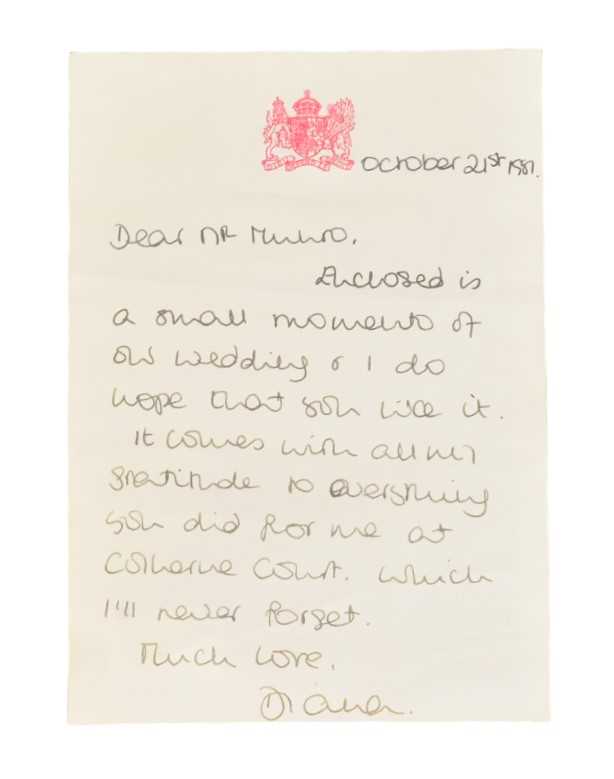 October 21st 1981.
Dear Mr Munro,
Enclosed is
a small momento of
our wedding & I do
hope that you like it.
It comes with all my
gratitude to everything
you did for me at
Colherne Court. which
I'll never forget.
Much love,
Diana.